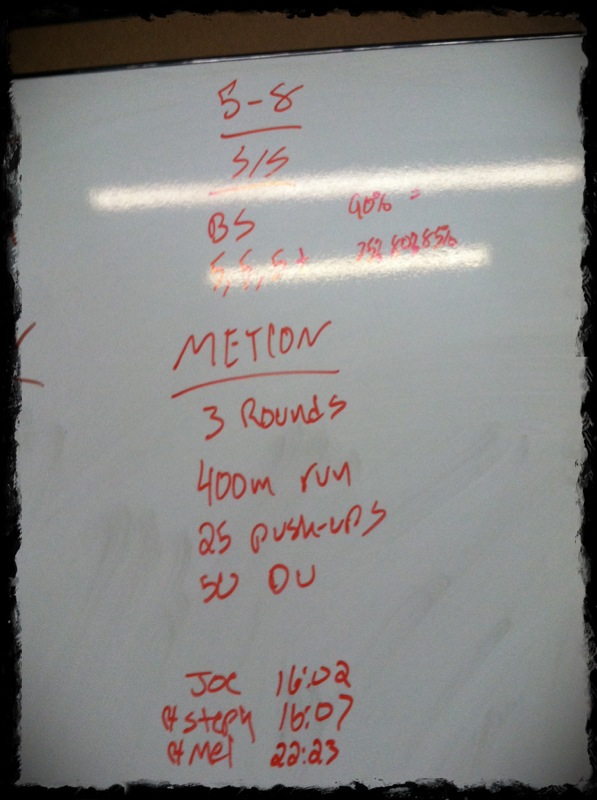 5-8
S/S
BS 90% =
5, 5, 5+ 75% 80% 85%
METCON
3 Rounds
400m run
25 push-ups
50 DU
Joe 16:02
steph 16:07
mel 22:23